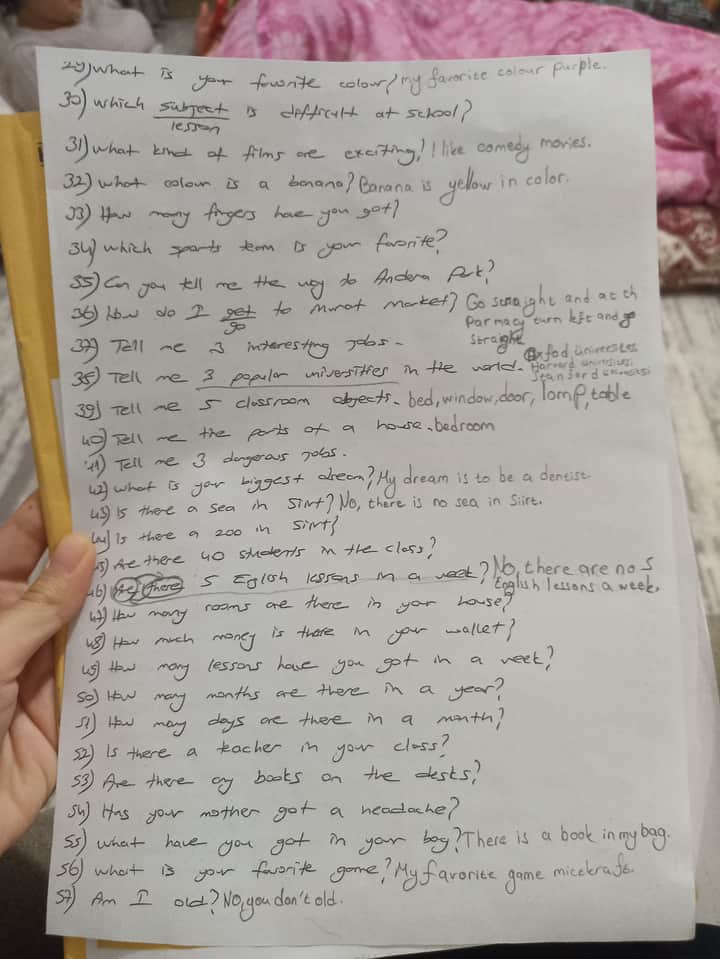 29) What is your favorite colour? my favorite colour purple.
30) which subject is difficult at school?
lesson
31) what kind of films are exciting? I like comedy movies.
32) what colour is a banana? Banana is yellow in color.
33) How many fingers have you got?
34) which sports team is your favorite?
35) Can you tell me the way to Andera Park?
36) How do I get to Murat market? Go straight and at th
go
Parmacy turn left and go
straight
37) Tell me 3 interesting jobs.
38) Tell me 3 popular universities in the world. Oxfod üniversites
Harvard üniversitesi
Stanford üniversitesi
39) Tell me 5 classroom objects. bed, window, door, lomp, table
40) Tell me the parts of a house. bedroom
41) Tell me 3 dangerous jobs.
42) what is your biggest dream? My dream is to be a dentist
43) Is there a sea in Siirt? No, there is no sea in Siirt.
44) Is there a zoo in Siirt?
45) Are there 40 students in the class?
46) Are there 5 Eglish lessons in a week? No, there are no 5
English lessons a week.
47) How many rooms are there in your house?
48) How much money is there in your wallet?
49) How many lessons have you got in a week?
50) How many months are there in a year?
51) How many days are there in a month?
52) Is there a teacher in your class?
53) Are there any books on the desks?
54) Has your mother got a headache?
55) what have you got in your bag? There is a book in my bag.
56) what is your favorite game? My favorite game micekraft.
57) Am I old? No, you don't old.